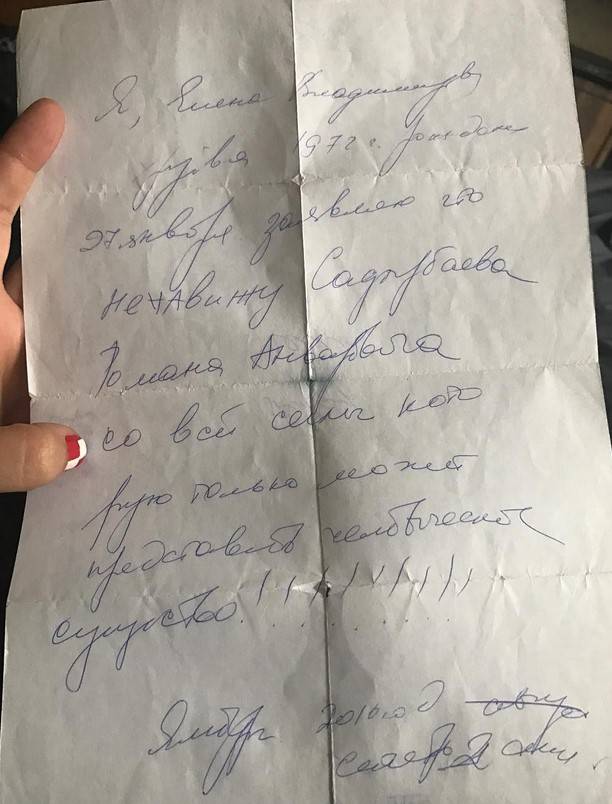 Я, Елена Владимировна
1972 г. рождения
27 января заявляю что
ненавижу Садырбаева
Романа Анваровича
со всей силы кото
рую только может
представить человеческое
существо!!!!!!!!!!
Ямбург 2016 год